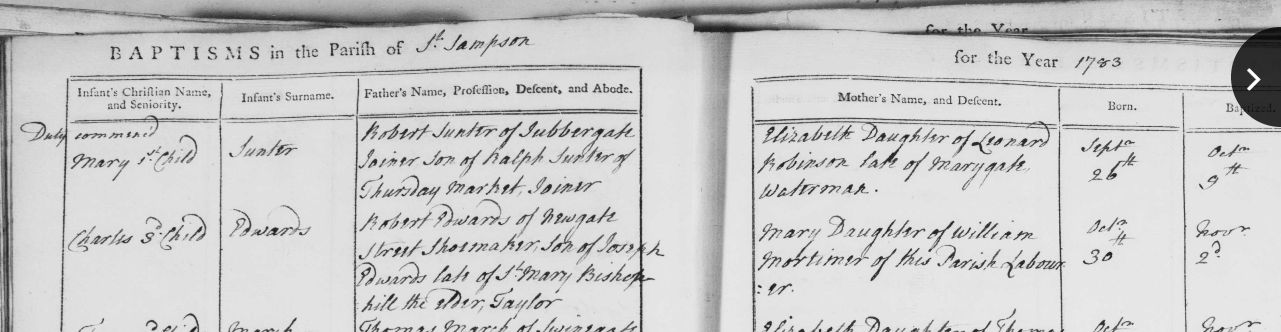 for the Year
BAPTISMS in the Parish of St. Sampson
for the Year 1783
Infant's Christian Name, and Seniority.
Infant's Surname.
Father's Name, Profession, Descent, and Abode.
Mother's Name, and Descent.
Born.
Baptized.
Duty commenc'd
Mary 1st. Child
Sunter
Robert Sunter of Jubbergate
Joiner Son of Ralph Sunter of
Thursday Market, Joiner
Elizabeth Daughter of Leonard
Robinson late of Marygate,
Waterman.
Septr
26th
Octr
9th
Charles 3d. Child
Edwards
Robert Edwards of Newgate
Street Shoemaker, Son of Joseph
Edwards late of St. Mary Bishop
hill the elder, Taylor
Mary Daughter of William
Mortimer of this Parish Labour
:er.
Octr
30th
Novr
2d.
March
Thomas March of Swinegate
Elizabeth Daughter of Thomas
Octr
Novr